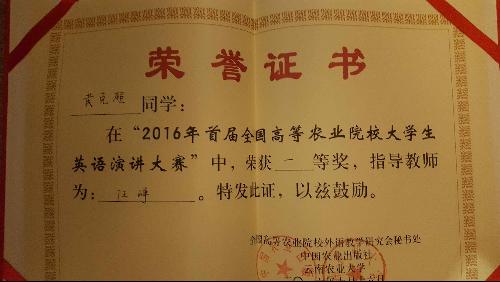 荣誉证书
同学：
在“2016年首届全国高等农业院校大学生
英语演讲大赛”中，荣获 二 等奖，指导教师
为： 汪 。特发此证，以兹鼓励。
全国高等农业院校外语教学研究会秘书处
中国农业出版社
云南农业大学